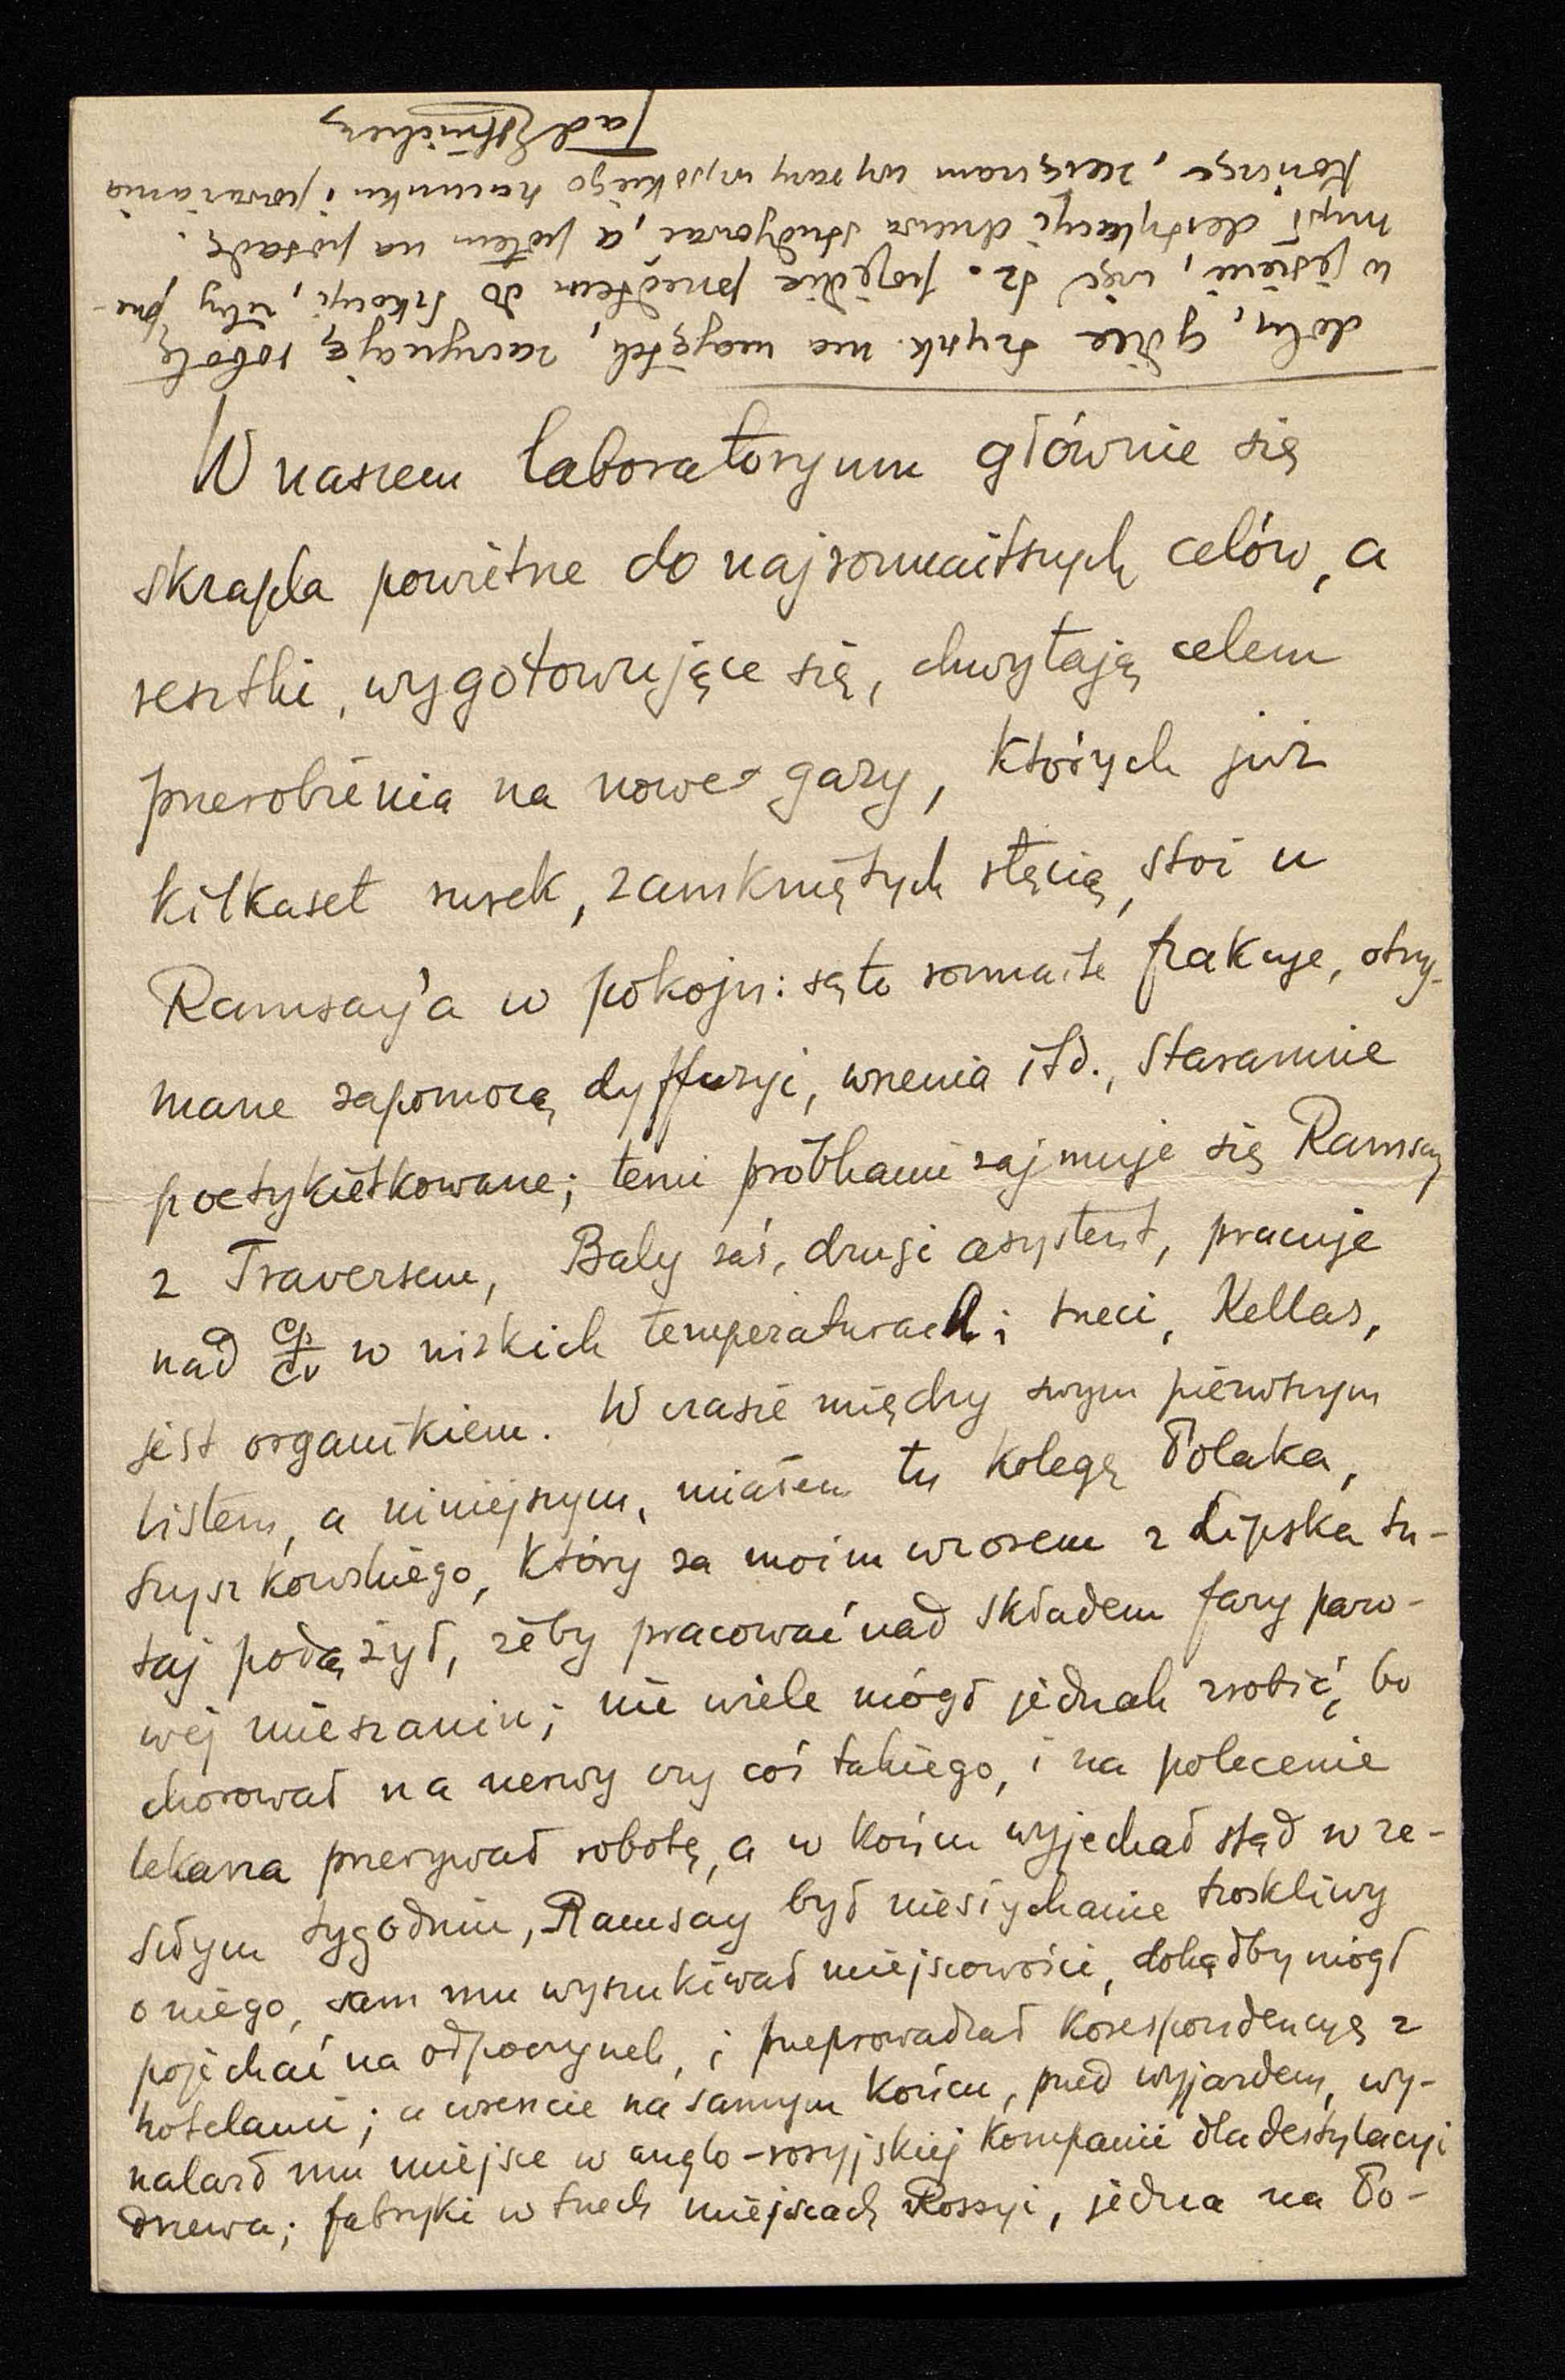 W naszem laboratoryum głównie się
skrapla powietrze do najrozmaitszych celów, a
resztki, wygotowujące się, chwytają celem
przerobienia na nowe gazy, których już
kilkaset rurek, zamkniętych rtęcią, stoi u
Ramsay'a w pokoju: są to rozmaite frakcye, otrzy-
mane zapomocą dyffuzyi, wrzenia itd., starannie
poetykietkowane; temi próbkami zajmuje się Ramsay
z Traversem, Baly zaś, drugi asystent, pracuje
nad cp/cv w nizkich temperaturach; trzeci, Kellas,
jest organikiem. W czasie między swym pierwszym
listem, a niniejszym, miałem tu kolegę Polaka,
Szyszkowskiego, który za moim wzorem z Lipska tu-
taj podążył, żeby pracować nad składem fazy paro-
wej mieszanin; nie wiele mógł jednak zrobić, bo
chorował na nerwy czy coś takiego, i na polecenie
lekarza przerywał robotę, a w końcu wyjechał stąd w ze-
szłym tygodniu, Ramsay był niesłychanie troskliwy
o niego, sam mu wyszukiwał miejscowości, dokądby mógł
pojechać na odpoczynek, i przeprowadzał korespondencyę z
hotelami; a wreszcie na samym końcu, przed wyjazdem, wy-
nalazł mu miejsce w anglo-rosyjskiej kompanii dla destylacyi
drzewa; fabryki w trzech miejscach Rossyi, jedna na Po-
dolu, gdzie Szyszk. ma majątek, zaczynają robotę
w jesieni, więc Sz. pojedzie przedtem do Szkocyi, żeby prze-
mysł destylacyi drzewa studyować, a potem na posadę.
Kończąc, zasyłam wyrazy wysokiego szacunku i poważania
Tad Estreicher